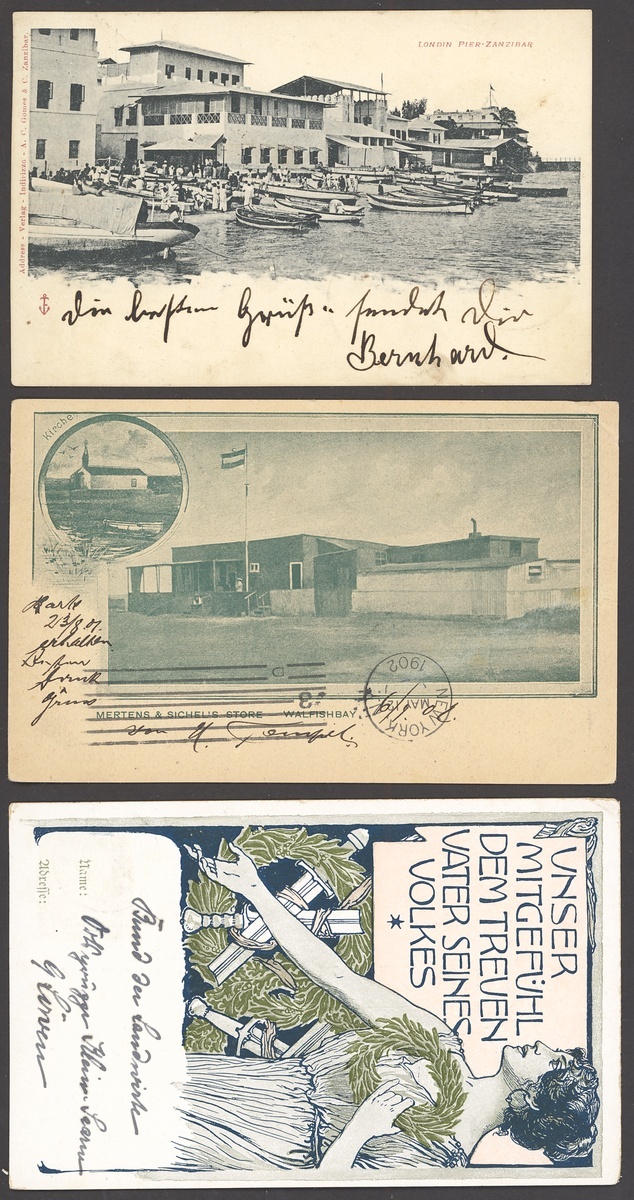 LONDIN PIER-ZANZIBAR
Address - Verlag - Indirizzo - A. C. Gomes & C. Zanzibar.
Die besten Grüße sendet Dir
Bernhard.
Kirche
Karte
23/8 01.
erhalten
Besten
Dank
Gruss
MERTENS & SICHEL'S STORE WALFISHBAY
von
NEW YORK
MAY 12
1902
D
3
UNSER
MITGEFÜHL
DEM TREUEN
VATER SEINES
VOLKES
Bund der Landwirte
Name:
Adresse: